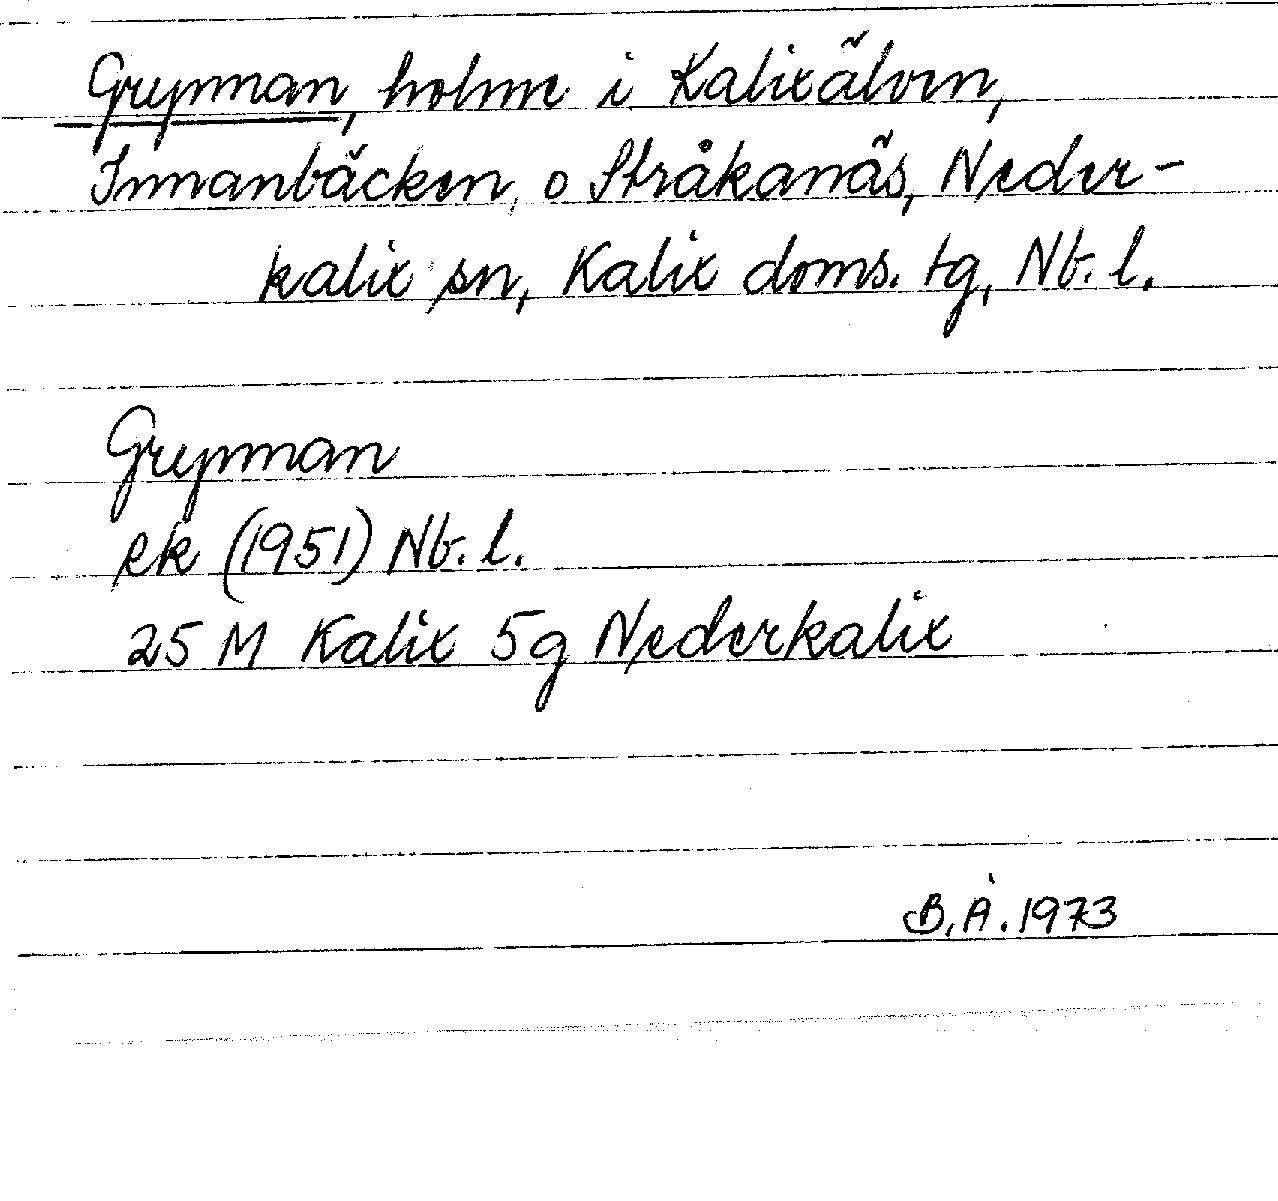 Grynnan, holme i Kalixälven,
Innanbäcken, o Stråkanäs, Neder-
kalix sn, Kalix doms. tg, Nb. l.
Grynnan
ek (1951) Nb. l.
25 M Kalix 5g Nederkalix
B.Å. 1973